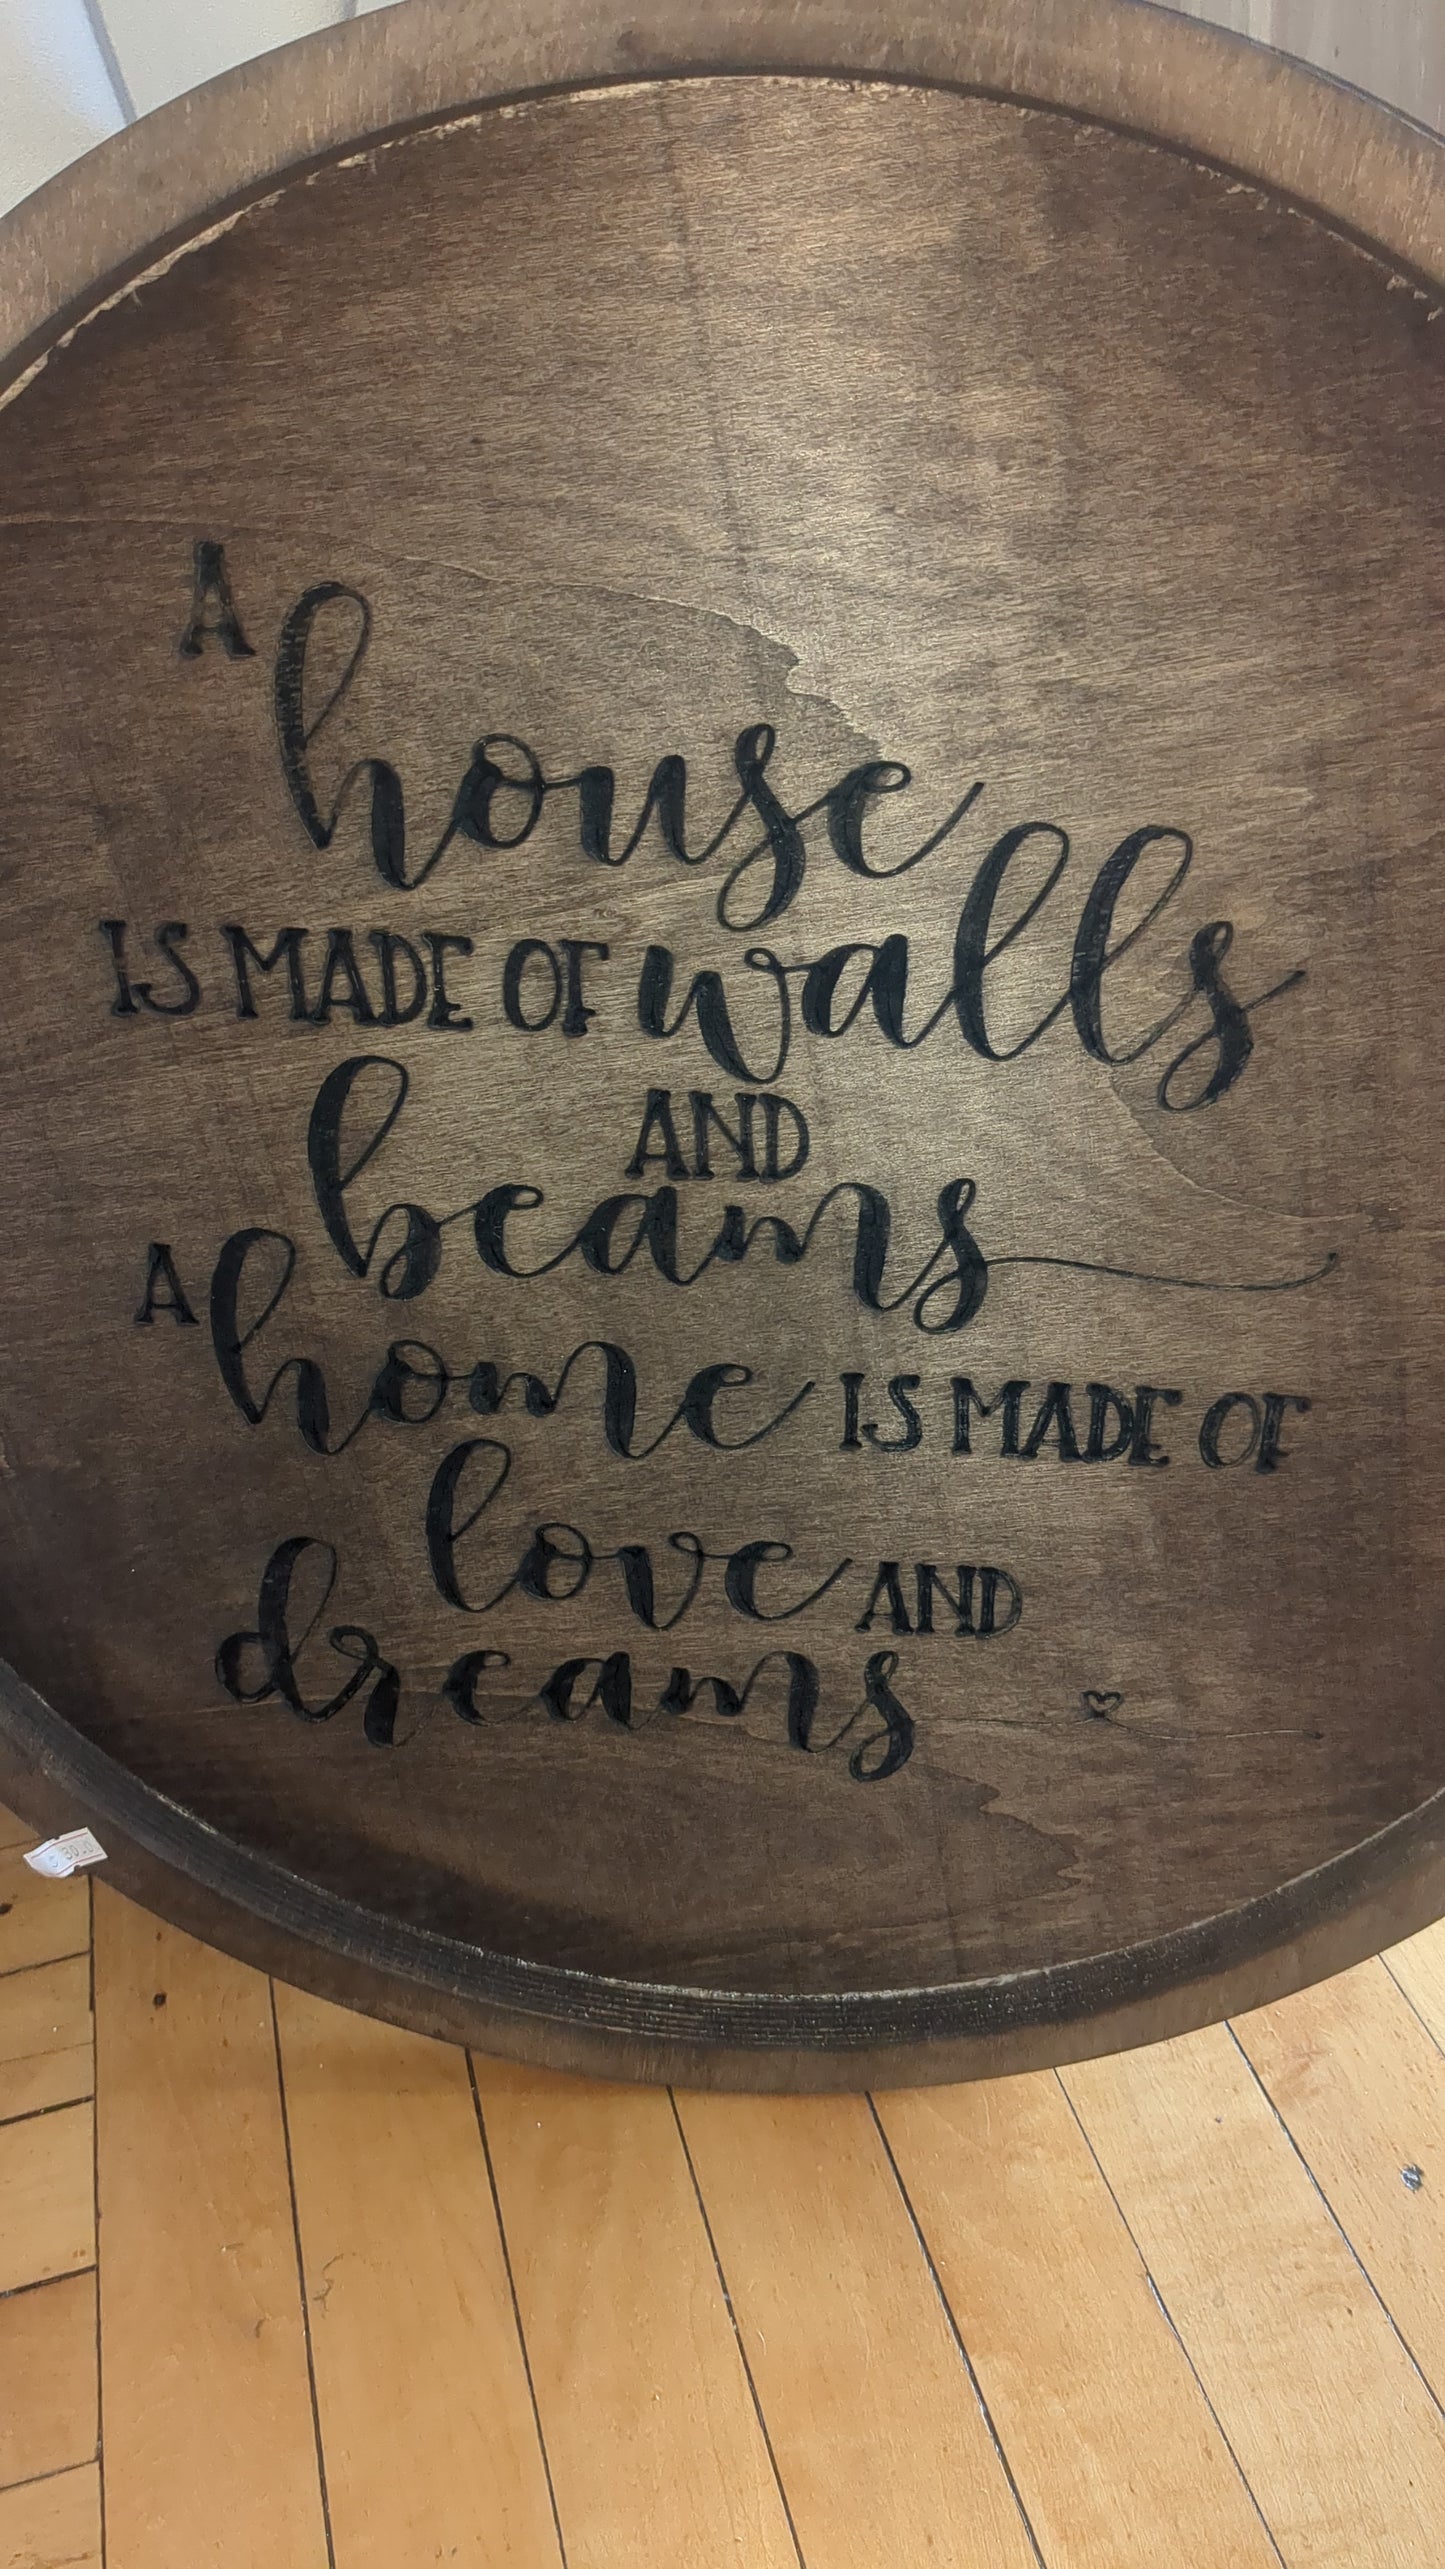 A house
IS MADE OF walls
AND
beams
A home IS MADE OF
love AND
dreams